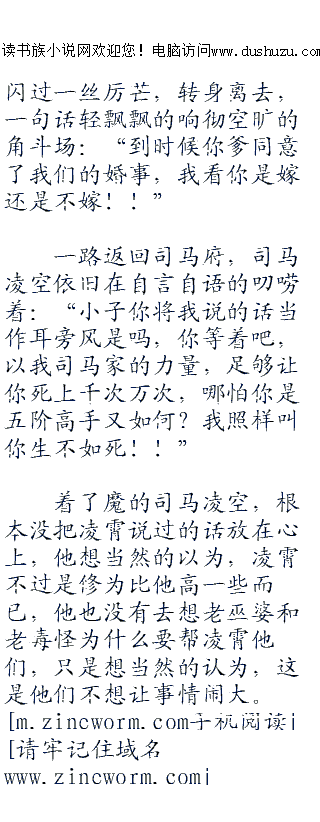 读书族小说网欢迎您！电脑访问www.dushuzu.com
闪过一丝厉芒，转身离去，
一句话轻飘飘的响彻空旷的
角斗场：“到时候你爹同意
了我们的婚事，我看你是嫁
还是不嫁！！”
一路返回司马府，司马
凌空依旧在自言自语的叨唠
着：“小子你将我说的话当
作耳旁风是吗，你等着吧，
以我司马家的力量，足够让
你死上千次万次，哪怕你是
五阶高手又如何？我照样叫
你生不如死！！”
着了魔的司马凌空，根
本没把凌霄说过的话放在心
上，他想当然的以为，凌霄
不过是修为比他高一些而
已，他也没有去想老巫婆和
老毒怪为什么要帮凌霄他
们，只是想当然的认为，这
是他们不想让事情闹大。
[m.zincworm.com手机阅读|
[请牢记住域名
www.zincworm.com|